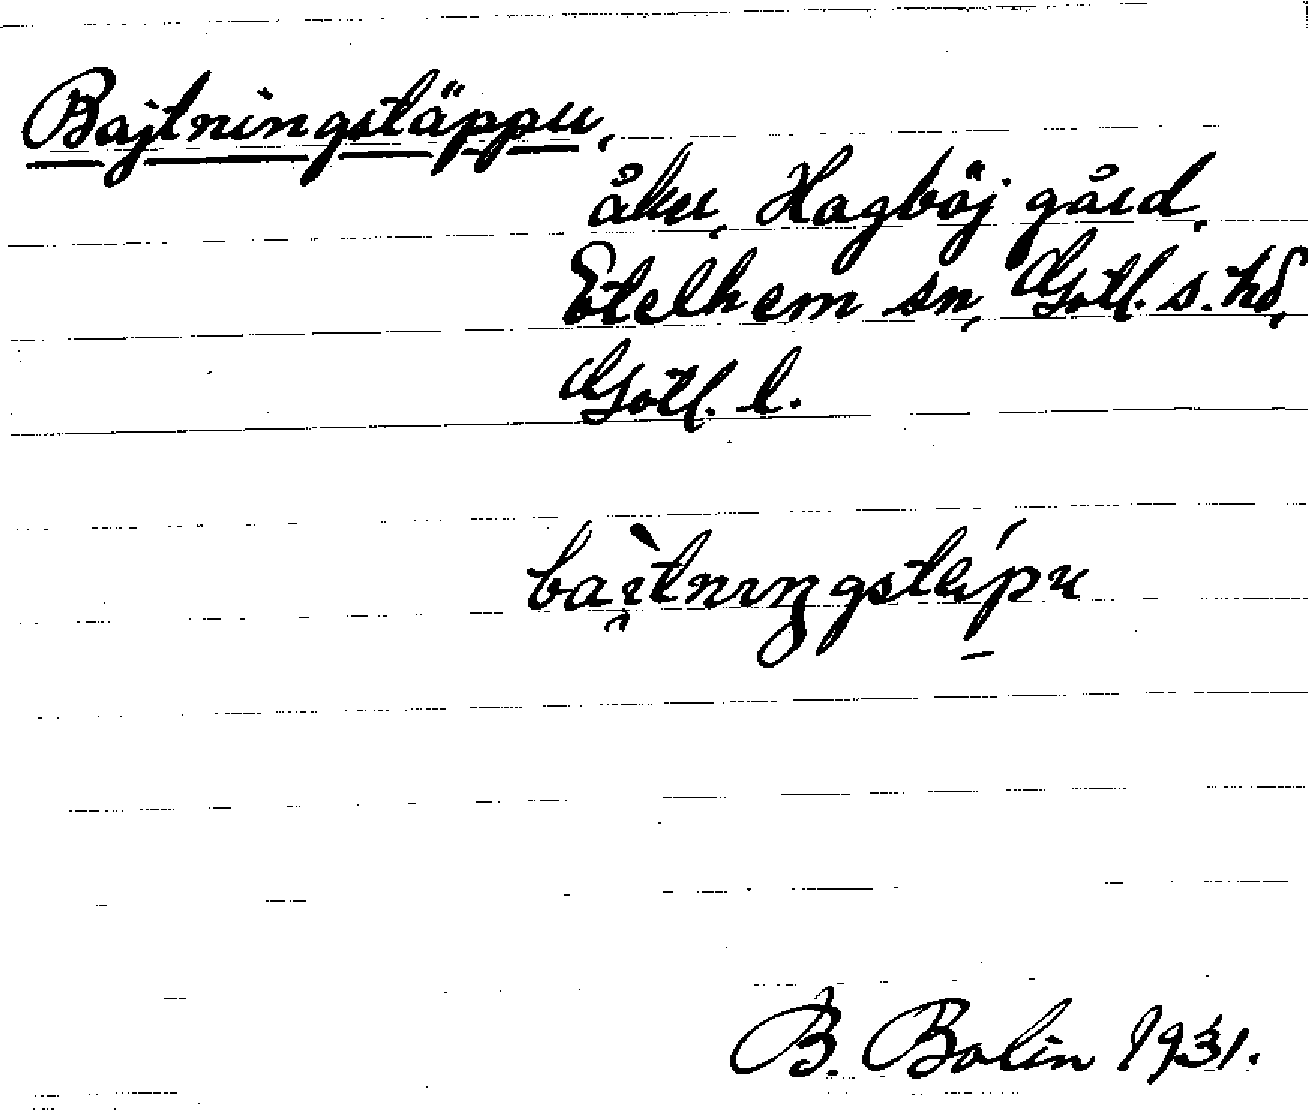 Bajtningstäppu,
åker, Hagböj gård,
Etelhem sn, Gotl. s. hd,
Gotl. l.
B. Bolin 1931.